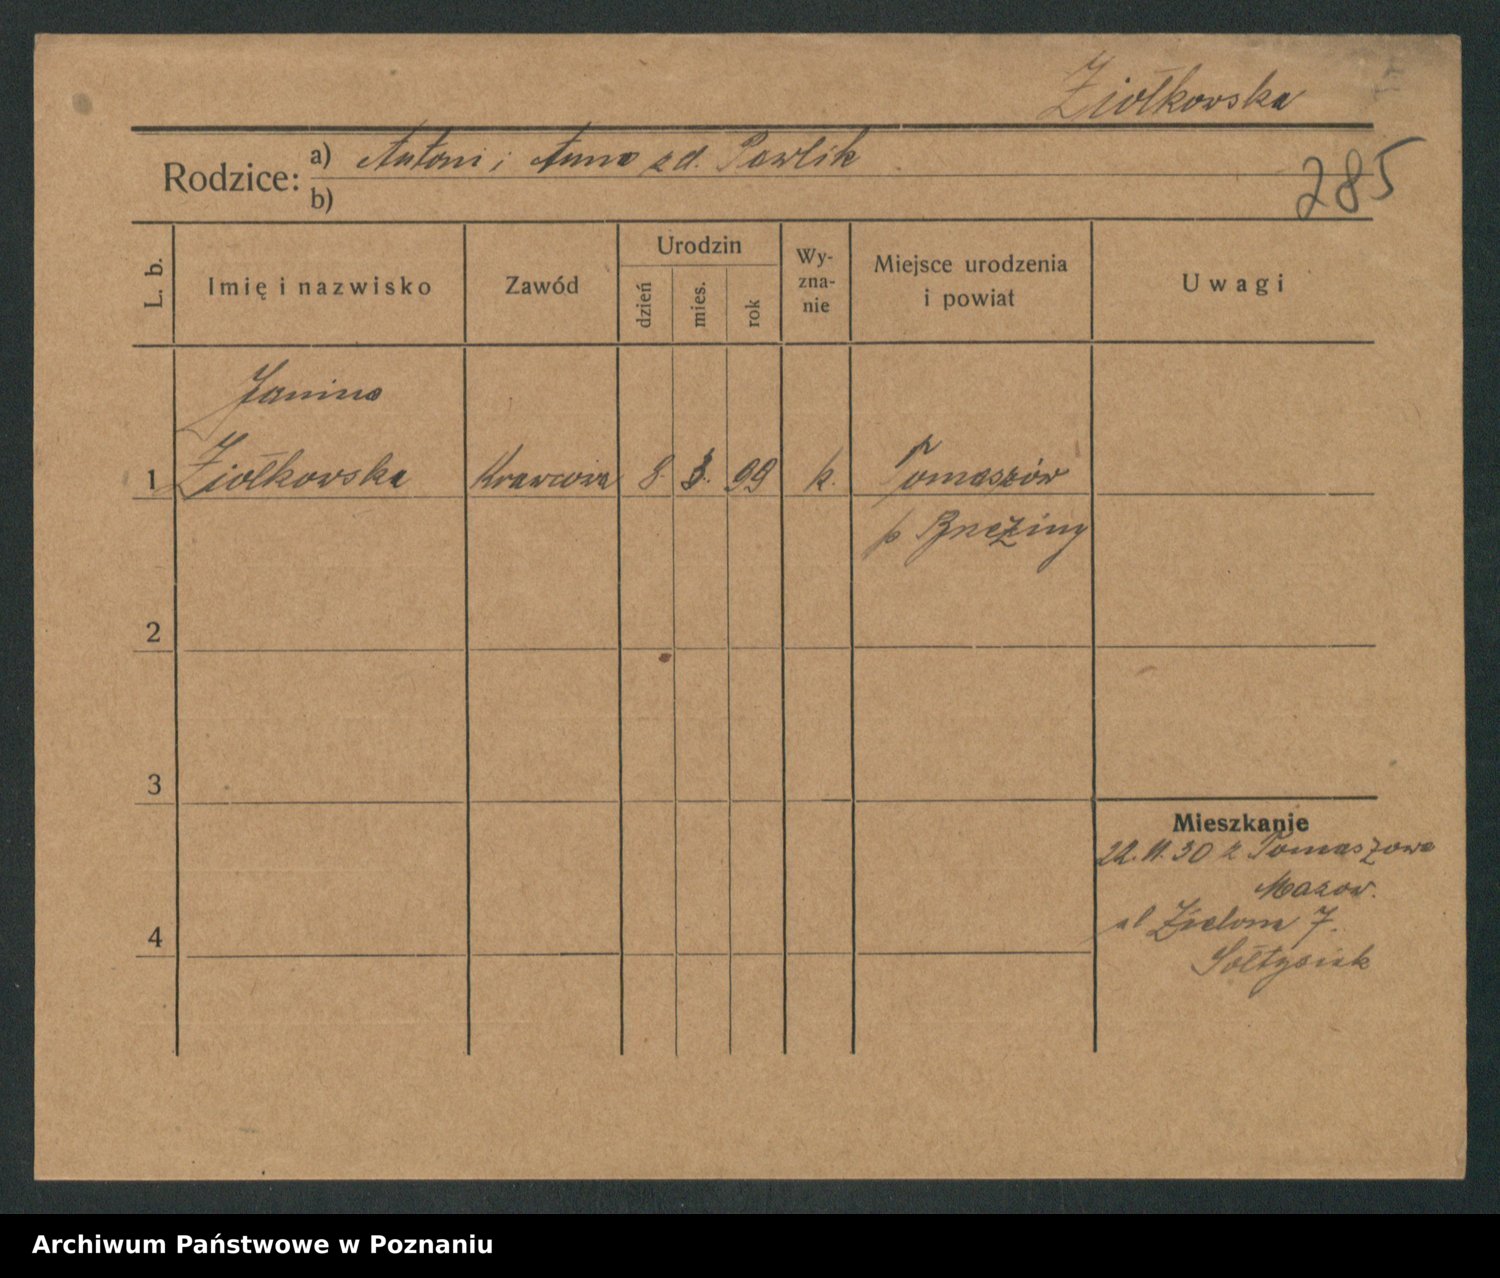 Ziółkowska
Rodzice: a) Antoni i Anna zd. Pawlik
b)
285
L. b. Imię i nazwisko Zawód Urodzin dzień mies. rok Wy-zna-nie Miejsce urodzenia i powiat Uwagi
Janina
1 Ziółkowska Krawcowa 8. 99 k. Tomaszów
p Brzeziny
2
3
Mieszkanie
22.11.30 z Tomaszowa
Mazow.
4 ul Zielona 7.
Sołtysiak
Archiwum Państwowe w Poznaniu